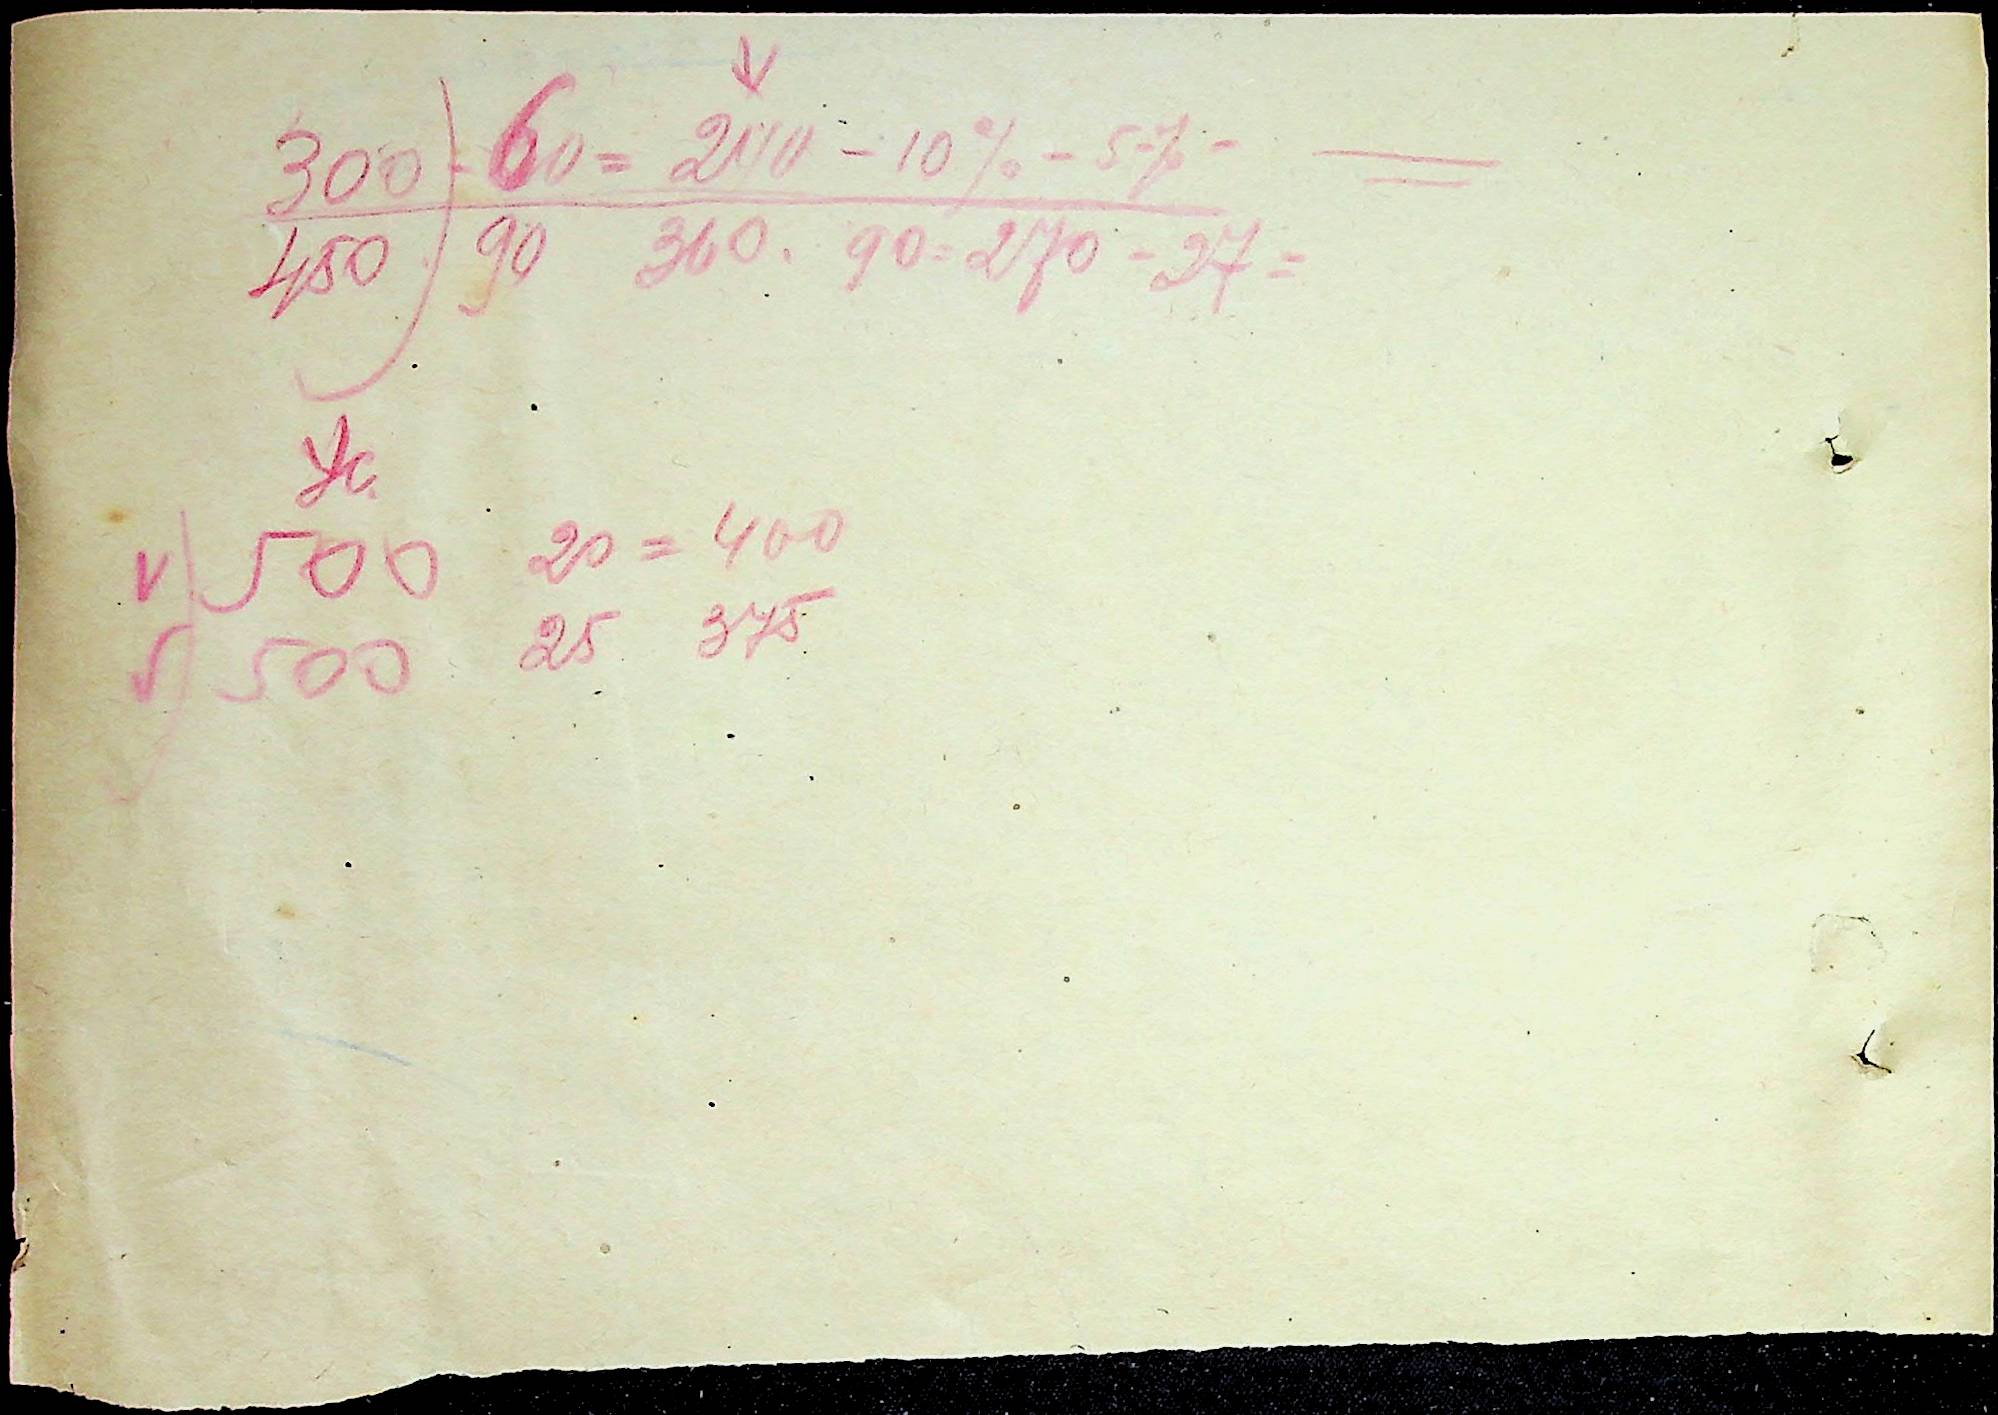 300) - 60 = 240 - 10% - 5% -
450) 90 360. 90 = 270 - 27 =
Ус.
V) 500 20 = 400
V) 500 25 375